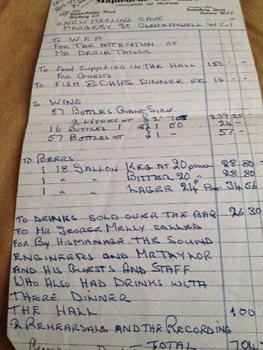 NEW MERLINS CAVE
MARGERY ST CLERKENWELL W.C.1
To W.E.A
FOR THE ATTENTION OF
MR DERIK TAYLOR
To FOOD SUPPLIED IN THE HALL 150
FOR GUESTS
To FISH & CHIPS DINNER
To WINE
87 BOTTLES GIANT SIZE
2 LITRE AT £2
16 BOTTLES £1 50 24 -
57 BOTTLES AT £1 - 57 -
To BEERS
1 18 GALLON KEG AT 20 28.80
1 " BITTER 20 " 28.80
1 " LAGER 24 34 56
To DRINKS SOLD OVER THE BAR 26 30
To MR GEORGE MELLY CALLED
FOR BY HIS MANAGE THE SOUND
ENGINEERS AND MR TAYLOR
AND HIS GUESTS AND STAFF
WHO ALSO HAD DRINKS WITH
THERE DINNER
THE HALL 100
2 REHEARSALS AND THE RECORDING
TOTAL 704